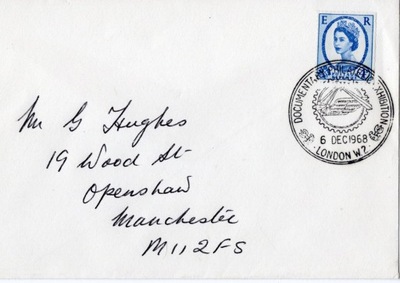 E R
DOCUMENTA EXHIBITION
6 DEC 1968
LONDON W?
Mr G Hughes
19 Wood St
Openshaw
Manchester
M11 2FS